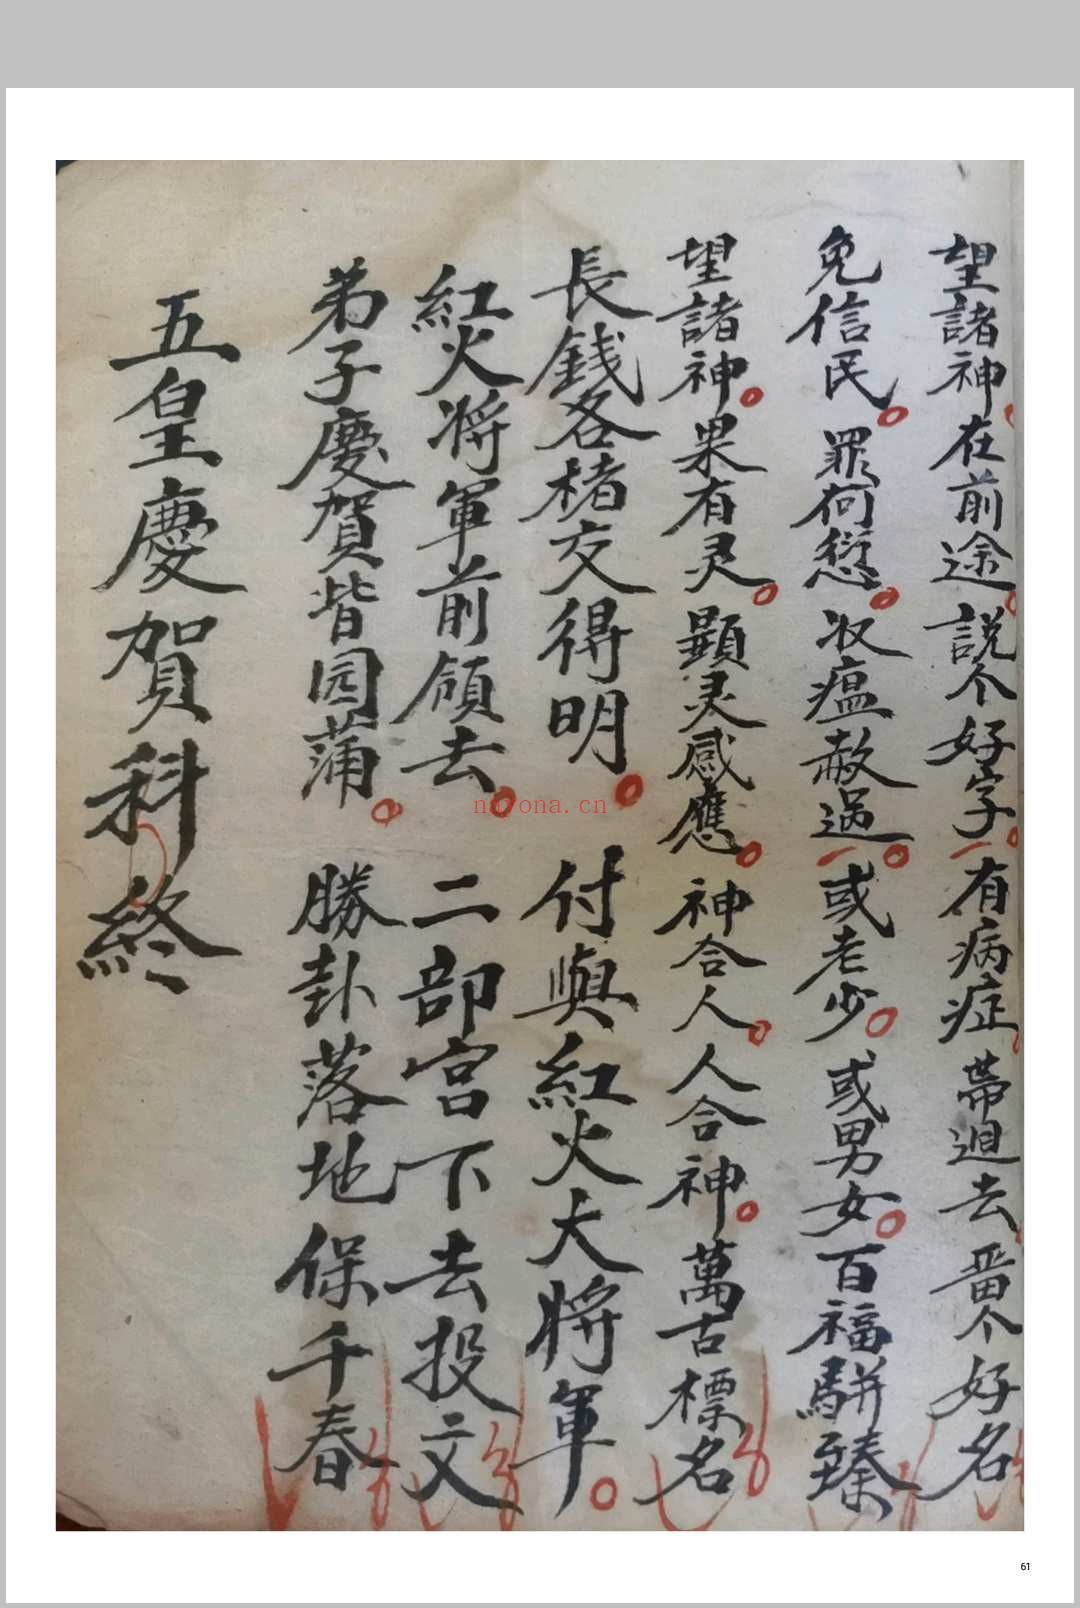 望諸神在前途說个好字有病症帶迴去畱个好名
免信民罪何愆收瘟赦過或老少或男女百福駢臻
望諸神果有灵顯灵感應神合人人合神萬古標名
長錢各楮交得明付與紅火大將軍
紅火将軍前領去二部宫下去投文
弟子慶賀皆园蒲勝卦落地保千春
五皇慶賀科終
nayona.cn
61